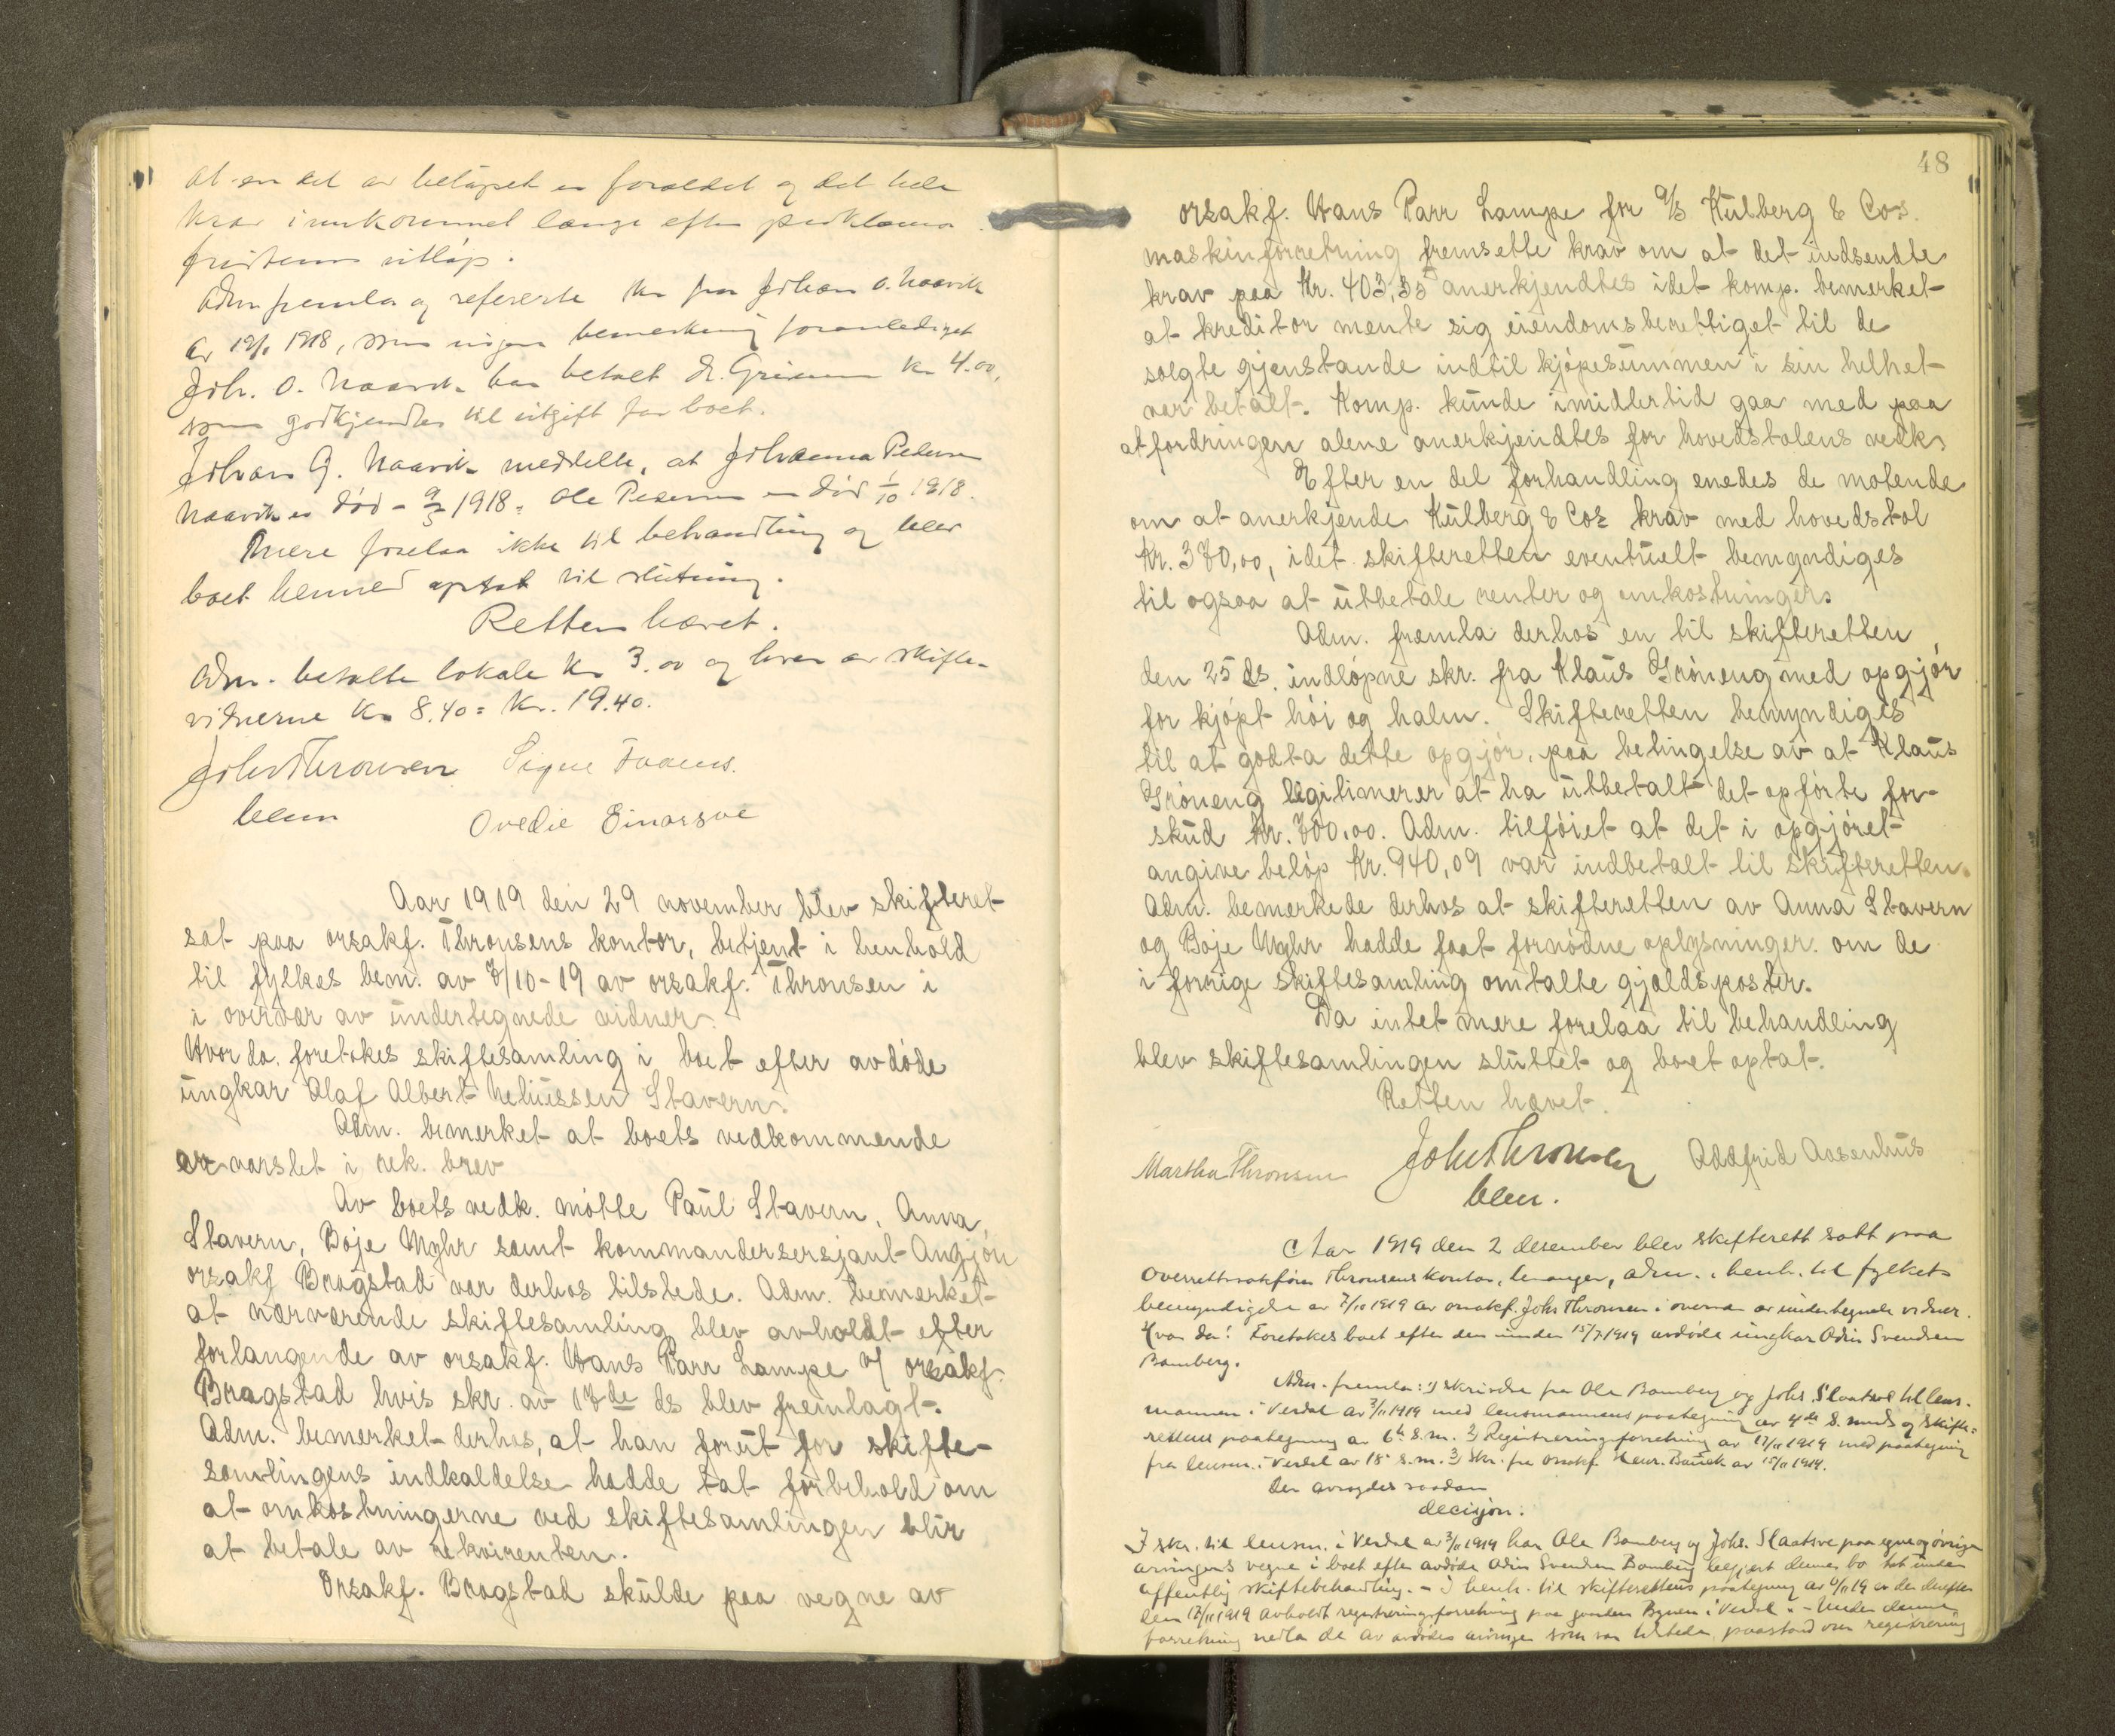 at en del av beløpet er forældet og det hele
krav innkommet længe efter proklama
fristens utløp.
Adm. fremla og refererte skr fra Johan O. Naavik
av 19/1 1918, som ingen bemerkning foranlediget
Joh. O. Naavik har betalt Kr. 4.00,
som godkjendtes til utgift for boet.
Johan G. Naavik meddelte, at Johanna Pedersen
Naavik er død - 9/3 1918. Ole Pedersen er død 1/10 1918.
Mere forelaa ikke til behandling og blev
boet henned optat til slutning.
Retten hævet.
Adm. betalte lokale Kr 3.00 og hver av skifte-
vidnerne Kr 8.40 = Kr. 19.40.
Johs Thronsen Signe Faanes.
bem Ovedie Einarsve
Aar 1919 den 29 november blev skifteret
sat paa orsakf. Thronsens kontor, betjent i henhold
til fylkes bem. av 7/10-19 av orsakf. Thronsen i
i overvær av undertegnede vidner.
Hvor da foretokes skiftesamling i boet efter avdøde
ungkar Olaf Albert Neliussen Stavern.
Adm. bemerket at boets vedkommende
er varslet i rek. brev
Av boets vedk. møtte Paul Stavern, Anna
Stavern, Boje Myhr samt kommandersersjant Angjøn
orsakf Bragstad var derhos tilstede. Adm. bemerket
at nærværende skiftesamling blev avholdt efter
forlangende av orsakf. Hans Parr Lampe v/ orsakf.
Bragstad hvis skr. av 17de ds blev fremlagt.
Adm. bemerket derhos, at han forut for skifte-
samlingens indkaldelse hadde tat forbehold om
at omkostningerne ved skiftesamlingen blir
at betale av rekvirenten.
Orsakf. Bragstad skulde paa vegne av
48
orsakf. Hans Parr Lampe for A/S Kulberg & Cos.
maskinforretning fremsette krav om at det indsendte
krav paa Kr. 403,35 anerkjendtes idet komp. bemerket
at kreditor mente sig eiendomsberettiget til de
solgte gjenstande indtil kjøpesummen i sin helhet
var betalt. Komp. kunde imidlertid gaa med paa
at fordringen alene anerkjendtes for hovedstolens vedk.
Efter en del forhandling enedes de møtende
om at anerkjende Kulberg & Cos krav med hovedstol
Kr. 370,00, idet skifteretten eventuelt bemyndiges
til ogsaa at utbetale renter og omkostninger.
Adm. fremla derhos en til skifteretten
den 25 ds. indløpne skr. fra Klaus Grøneng med opgjør
for kjøpt høi og halm. Skifteretten bemyndiges
til at godta dette opgjør, paa betingelse av at Klaus
Grøneng legitimerer at ha utbetalt det opførte for-
skud Kr. 700.00. Adm. tilføiet at det i opgjøret
angivne beløp Kr. 940,09 var indbetalt til skifteretten.
Adm. bemerkede derhos at skifteretten av Anna Stavern
og Boje Myhr hadde faat fornødne oplysninger om de
i forrige skiftesamling omtalte gjældsposter.
Da intet mere forelaa til behandling
blev skiftesamlingen sluttet og boet optat.
Retten hævet.
Martha Thronsen Johs Thronsen Oddfrid Aasenhus
bem.
Aar 1919 den 2 desember blev skifterett satt paa
overrettssakfører Thronsens kontor, Levanger, adm. i henh. til fylkets
bemyndigelse av 7/10 1919 av orsakf. Johs Thronsen i overvær av undertegnede vidner.
Hvor da: Foretokes boet efter den under 15/7 1919 avdøde ungkar Odin Svendsen
Bamberg.
Adm. fremla: 1) skrivelse fra Ole Bamberg og Johs. Slaatsve til lens-
mannen i Verdal av 3/11 1919 med lensmannens paategning av 4de s. mnd og skifte-
rettens paategning av 6te s.m. 2) Registreringsforretning av 17/11 1919 med paategning
fra lensm. i Verdal av 18 s.m. 3) Skr. fra orsakf. Bauck av 15/11 1919.
Der avsagdes saadan
decisjon:
I skr. til lensm. i Verdal av 3/11 1919 har Ole Bamberg og Johs. Slaatsve paa egne og øvrige
arvingers vegne i boet efter avdøde Odin Svendsen Bamberg begjært dennes bo tat under
offentlig skiftebehandling. - I henh. til skifterettens paategning av 6/11 19 er der derefter
den 17/11 1919 avholdt registreringsforretning paa gaarden i Verdal. - Under denne
forretning nedla de av avdødes arvinger som var tilstede, paastand om registrering